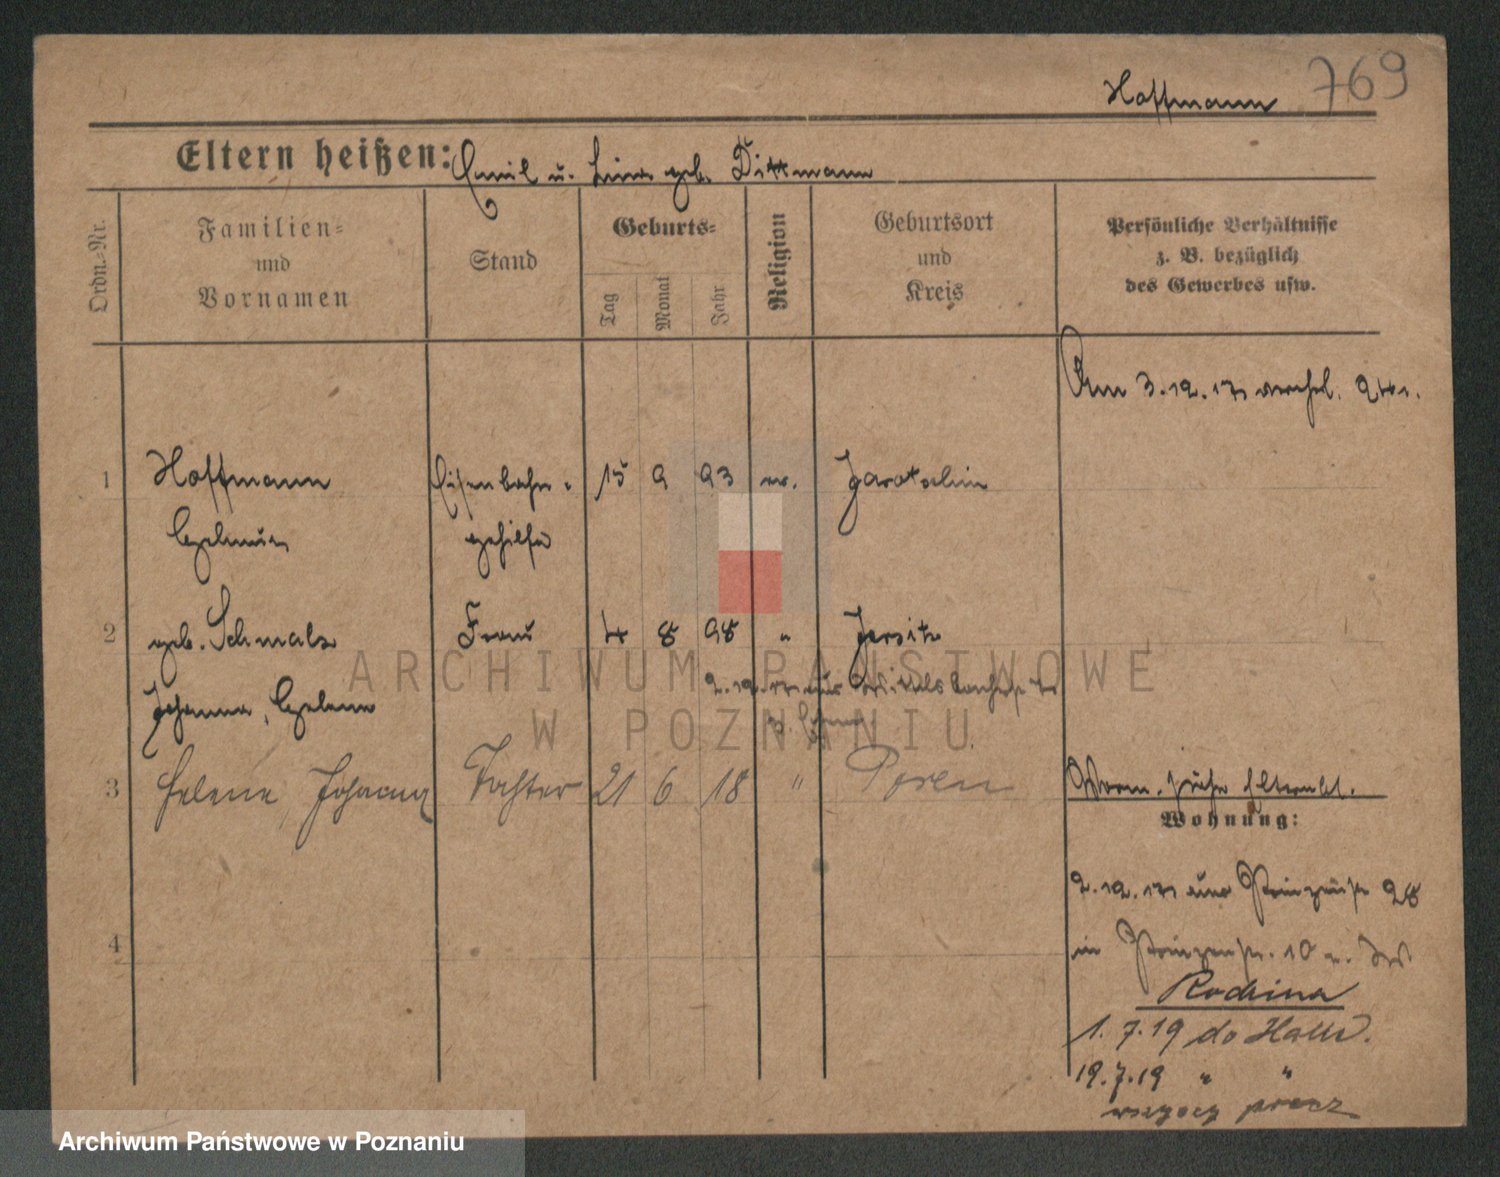 Hoffmann 769
Eltern heißen: Emil u. geb. Dittmann
Ordn.-Nr.
Familien-
und
Vornamen
Stand
Geburts-
Tag
Monat
Jahr
Religion
Geburtsort
und
Kreis
Persönliche Verhältnisse
z. B. bezüglich
des Gewerbes usw.
Am 3.12.17 verehel.
1 Hoffmann Eisenbahn- 15 9 93 ev. Jarotschin
gehilfe
2 geb. Schmalz Frau 4 8 98 " Jersitz
Johanna, Helene
2.12.17 aus
3 Helene Johanna Tochter 21 6 18 " Posen
Wohnung:
2.12.17 28
4
in Prinzenstr. 10
Rodzina
1.7.19 do Halle.
19.7.19 " "
wszyscy precz
ARCHIWUM PAŃSTWOWE
W POZNANIU
Archiwum Państwowe w Poznaniu